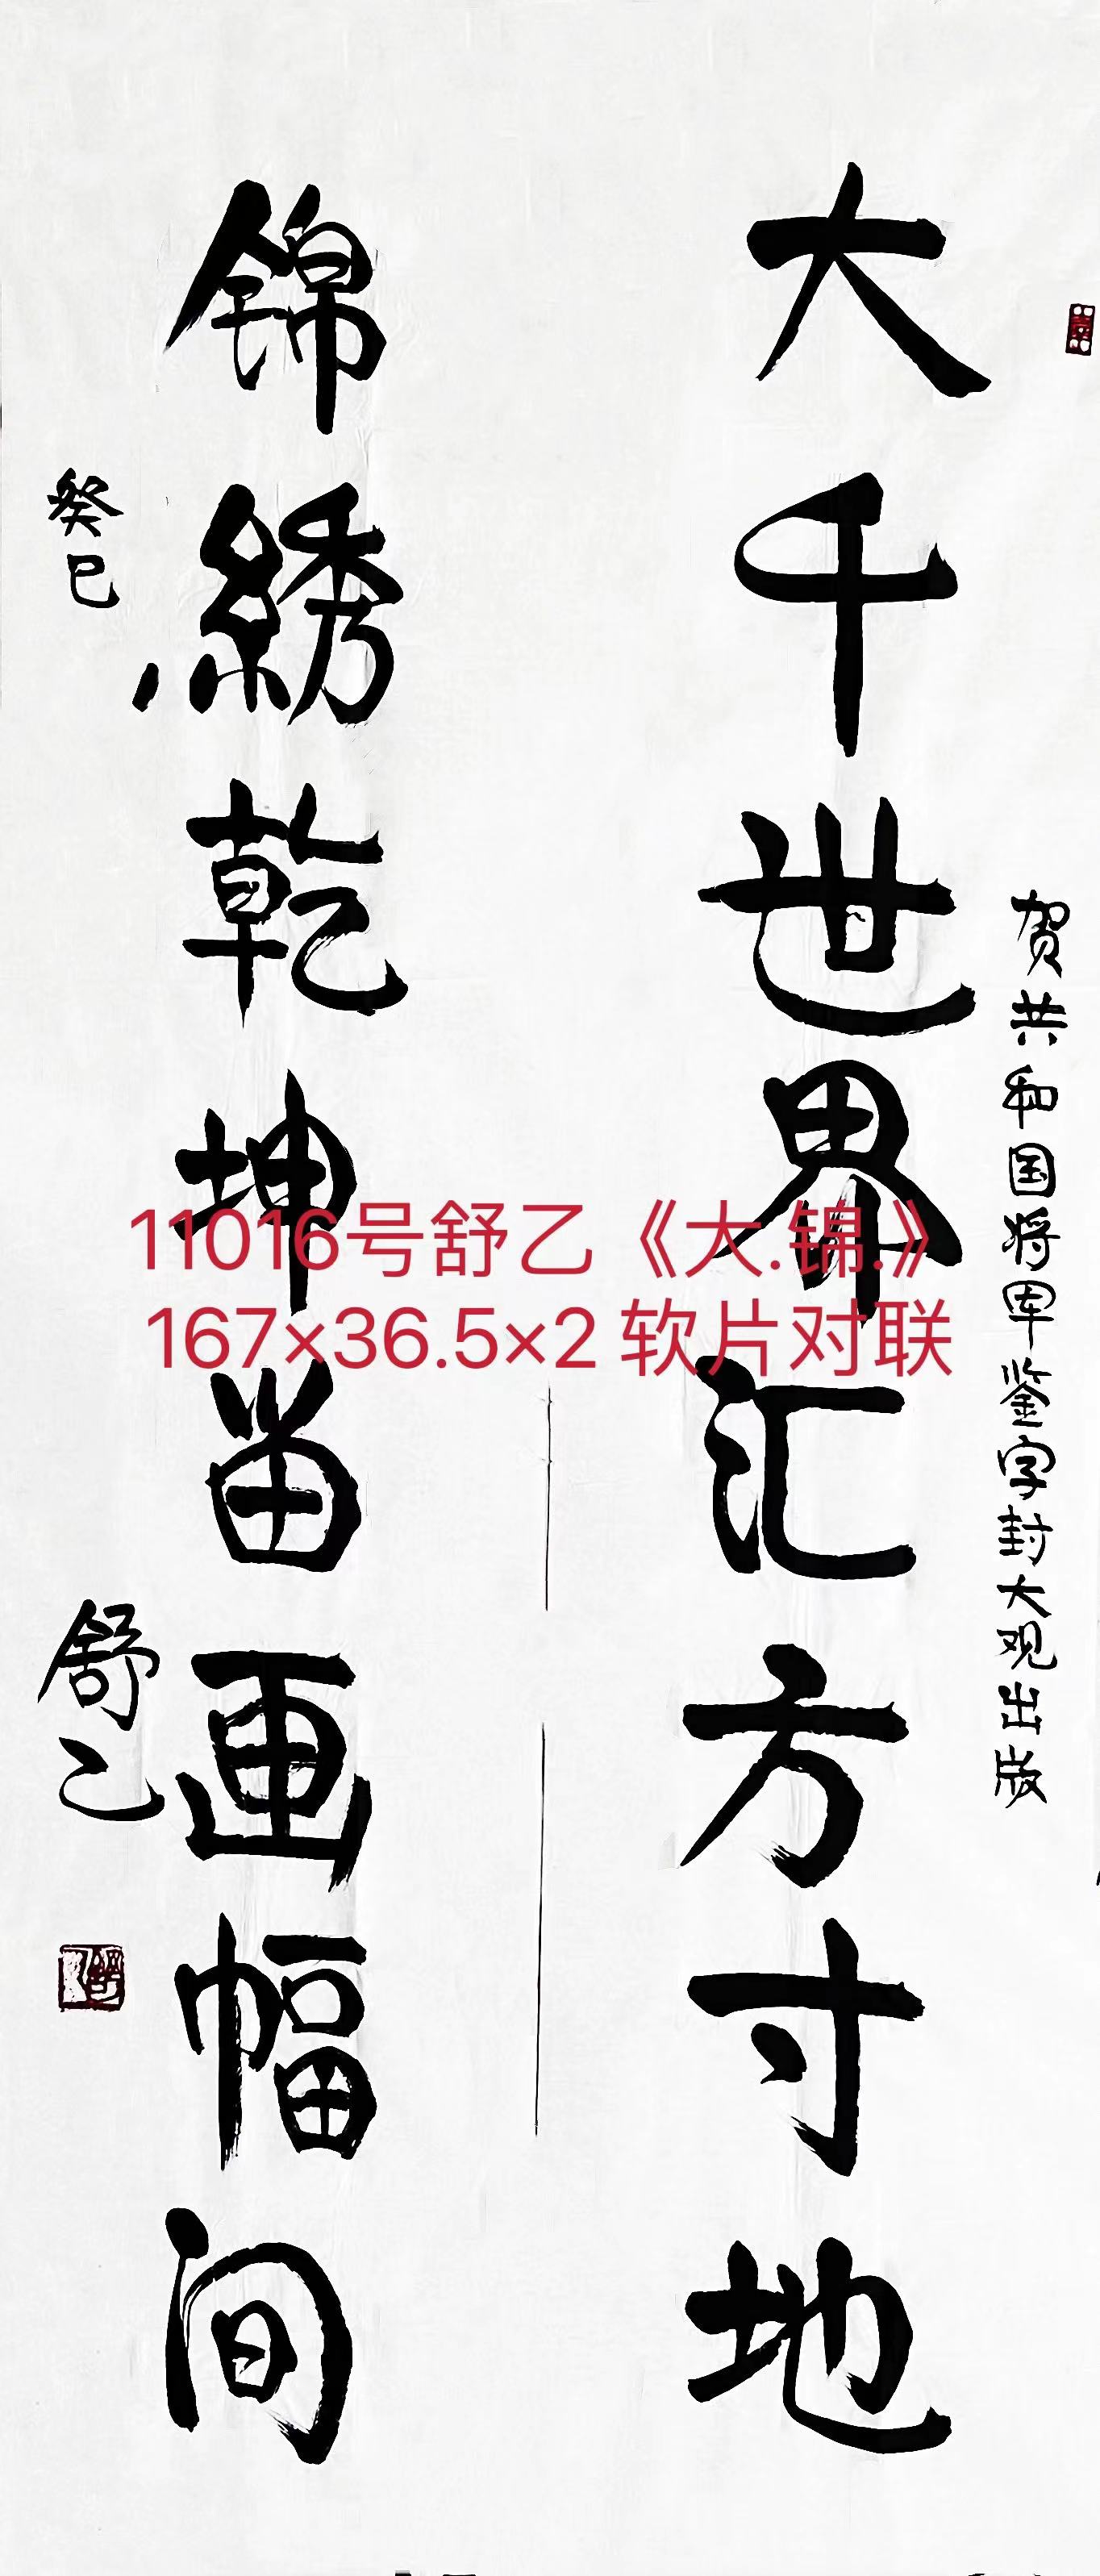 贺共和国将军鉴字封大观出版
大千世界汇方寸地
锦绣乾坤留画幅间
癸巳
舒乙
11016号舒乙《大.锦.》
167×36.5×2 软片对联